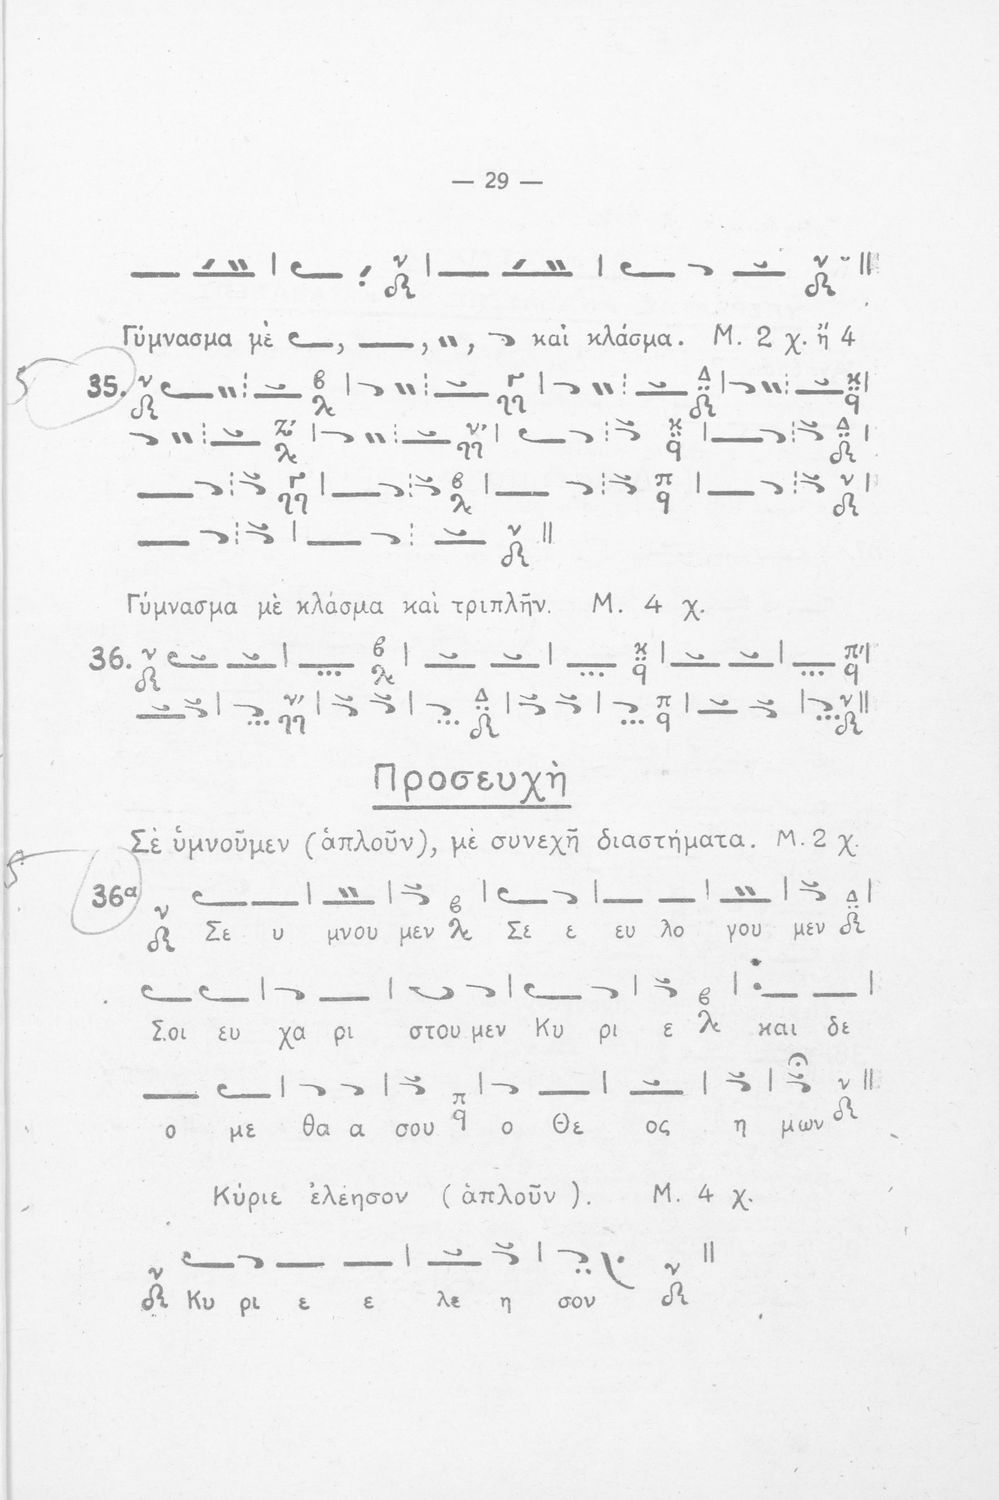 — 29 —
Γύμνασμα μὲ , , , καὶ κλάσμα. Μ. 2 χ. ἤ 4
35.
Γύμνασμα μὲ κλάσμα καὶ τριπλῆν. Μ. 4 χ.
36.
Προσευχὴ
Σὲ ὑμνοῦμεν (ἁπλοῦν), μὲ συνεχῆ διαστήματα. Μ. 2 χ.
36α
Σε υ μνου μεν Σε ε ευ λο γου μεν
Σοι ευ χα ρι στου μεν Κυ ρι ε και δε
ο με θα α σου ο Θε ος η μων
Κύριε ἐλέησον (ἁπλοῦν). Μ. 4 χ.
Κυ ρι ε ε λε η σον